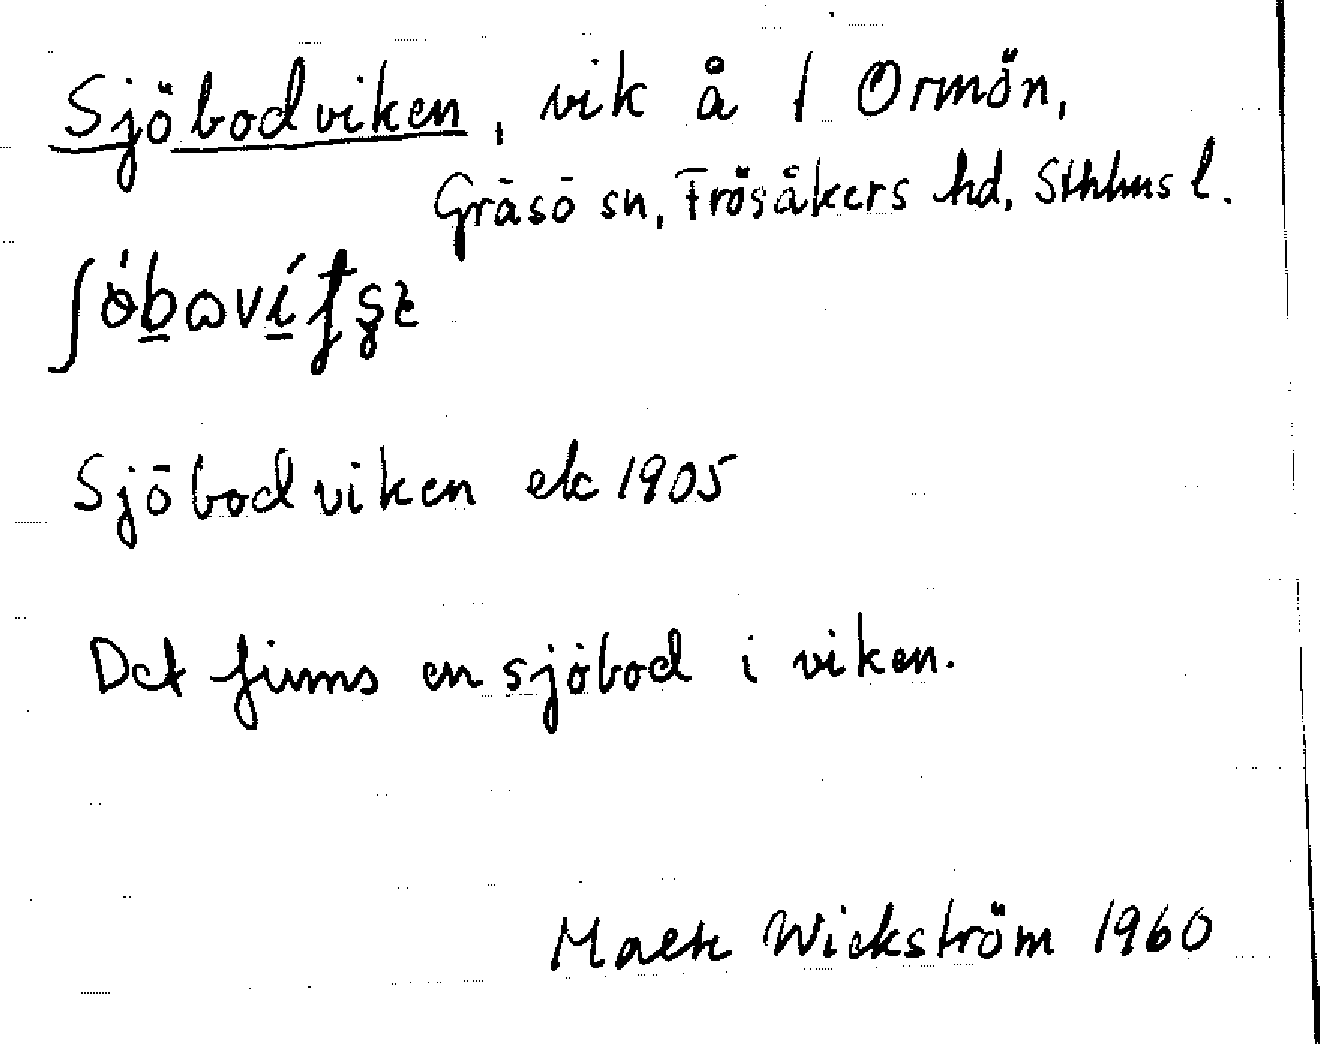 Sjöbodviken, vik å 1 Ormön,
Gräsö sn, Frösåkers hd, Sthlms l.
Sjöbodviken ek 1905
Det finns en sjöbod i viken.
Wickström 1960